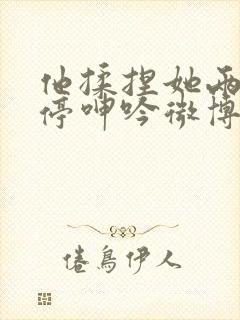 他揉捏她两
停呻吟微博
倦鸟伊人